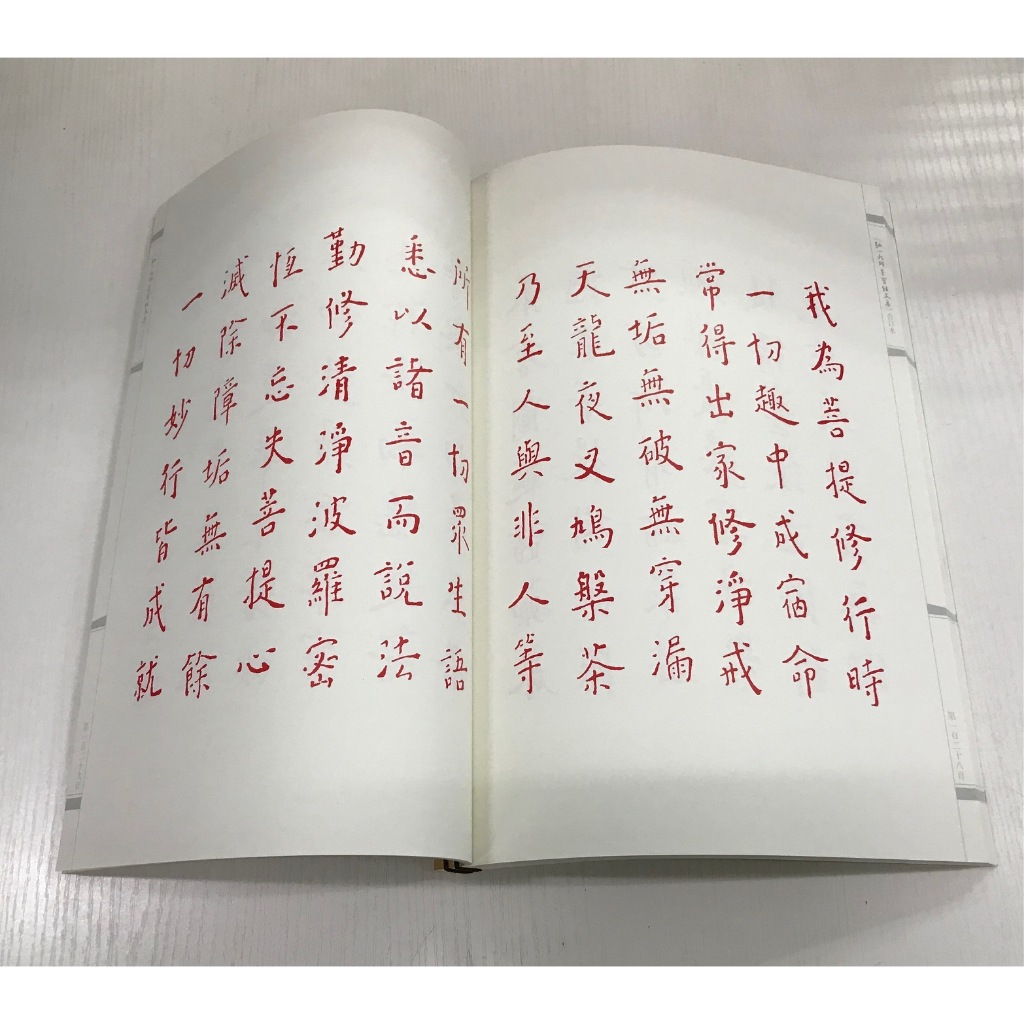 我為菩提修行時
一切趣中成宿命
常得出家修淨戒
無垢無破無穿漏
天龍夜叉鳩槃荼
乃至人與非人等
第一百二十八頁
所有一切眾生語
悉以諸音而說法
勤修清淨波羅密
恆不忘失菩提心
滅除障垢無有餘
一切妙行皆成就